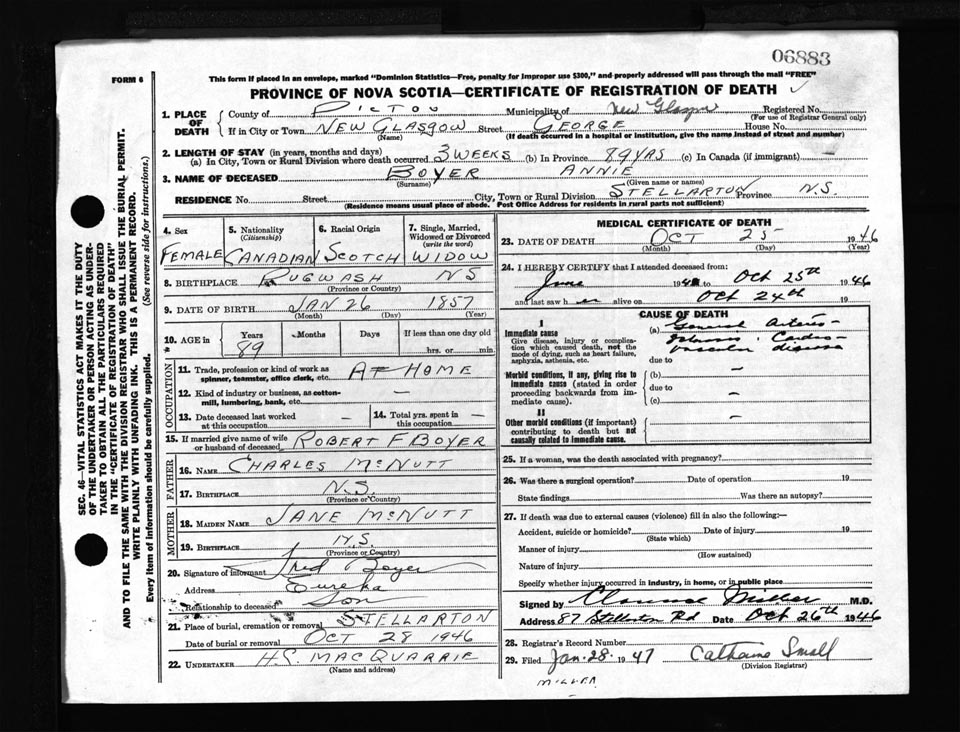 06883
FORM 6
This form if placed in an envelope, marked "Dominion Statistics—Free, penalty for improper use $300," and properly addressed will pass through the mail "FREE"
PROVINCE OF NOVA SCOTIA—CERTIFICATE OF REGISTRATION OF DEATH
1. PLACE OF DEATH
County of PICTOU Municipality of New Glasgow Registered No.
(For use of Registrar General only)
If in City or Town NEW GLASGOW Street GEORGE House No.
(Name) (If death occurred in a hospital or institution, give the name instead of street and number)
2. LENGTH OF STAY (in years, months and days)
(a) In City, Town or Rural Division where death occurred 3 WEEKS (b) In Province 89 YRS (c) In Canada (if immigrant) —
3. NAME OF DECEASED BOYER ANNIE
(Surname) (Given name or names)
RESIDENCE No. Street City, Town or Rural Division STELLARTON Province N.S.
(Residence means usual place of abode. Post Office Address for residents in rural parts not sufficient)
4. Sex 5. Nationality (Citizenship) 6. Racial Origin 7. Single, Married, Widowed or Divorced (write the word)
FEMALE CANADIAN SCOTCH WIDOW
8. BIRTHPLACE PUGWASH N S
(Province or Country)
9. DATE OF BIRTH JAN 26 1857
(Month) (Day) (Year)
10. AGE in Years Months Days If less than one day old
89 hrs. or min.
OCCUPATION
11. Trade, profession or kind of work as spinner, teamster, office clerk, etc. AT HOME
12. Kind of industry or business, as cotton-mill, lumbering, bank, etc. —
13. Date deceased last worked at this occupation — 14. Total yrs. spent in this occupation —
15. If married give name of wife or husband of deceased ROBERT F BOYER
FATHER
16. NAME CHARLES McNUTT
17. BIRTHPLACE N.S.
(Province or Country)
MOTHER
18. MAIDEN NAME JANE McNUTT
19. BIRTHPLACE N.S.
(Province or Country)
20. Signature of informant Fred Boyer
Address Eureka
Relationship to deceased Son
21. Place of burial, cremation or removal STELLARTON
Date of burial or removal OCT 28 1946
22. UNDERTAKER H.S. MACQUARRIE
(Name and address)
MEDICAL CERTIFICATE OF DEATH
23. DATE OF DEATH OCT 25 1946
(Month) (Day) (Year)
24. I HEREBY CERTIFY that I attended deceased from:
June 194 to Oct 25th 1946
and last saw h er alive on Oct 24th 19
CAUSE OF DEATH
I
Immediate cause
Give disease, injury or complication which caused death, not the mode of dying, such as heart failure, asphyxia, asthenia, etc.
(a) General Arterio
sclerosis. Cardio
vascular disease
due to
Morbid conditions, if any, giving rise to immediate cause (stated in order proceeding backwards from immediate cause).
(b) —
due to
(c)
II
Other morbid conditions (if important) contributing to death but not causally related to immediate cause.
25. If a woman, was the death associated with pregnancy?
26. Was there a surgical operation? Date of operation 19
State findings Was there an autopsy?
27. If death was due to external causes (violence) fill in also the following:—
Accident, suicide or homicide? Date of injury 19
(State which)
Manner of injury
(How sustained)
Nature of injury
Specify whether injury occurred in industry, in home, or in public place
Signed by Clarence Miller M.D.
Address 87 Stellarton Rd Date Oct 26th 1946
28. Registrar's Record Number
29. Filed Jan. 28. 1947 Catherine Small
(Division Registrar)
MILLER
SEC. 46—VITAL STATISTICS ACT MAKES IT THE DUTY
OF THE UNDERTAKER OR PERSON ACTING AS UNDER-
TAKER TO OBTAIN ALL THE PARTICULARS REQUIRED
IN THE "CERTIFICATE OF REGISTRATION OF DEATH"
AND TO FILE THE SAME WITH THE DIVISION REGISTRAR WHO SHALL ISSUE THE BURIAL PERMIT.
WRITE PLAINLY WITH UNFADING INK. THIS IS A PERMANENT RECORD.
Every item of information should be carefully supplied. (See reverse side for instructions.)